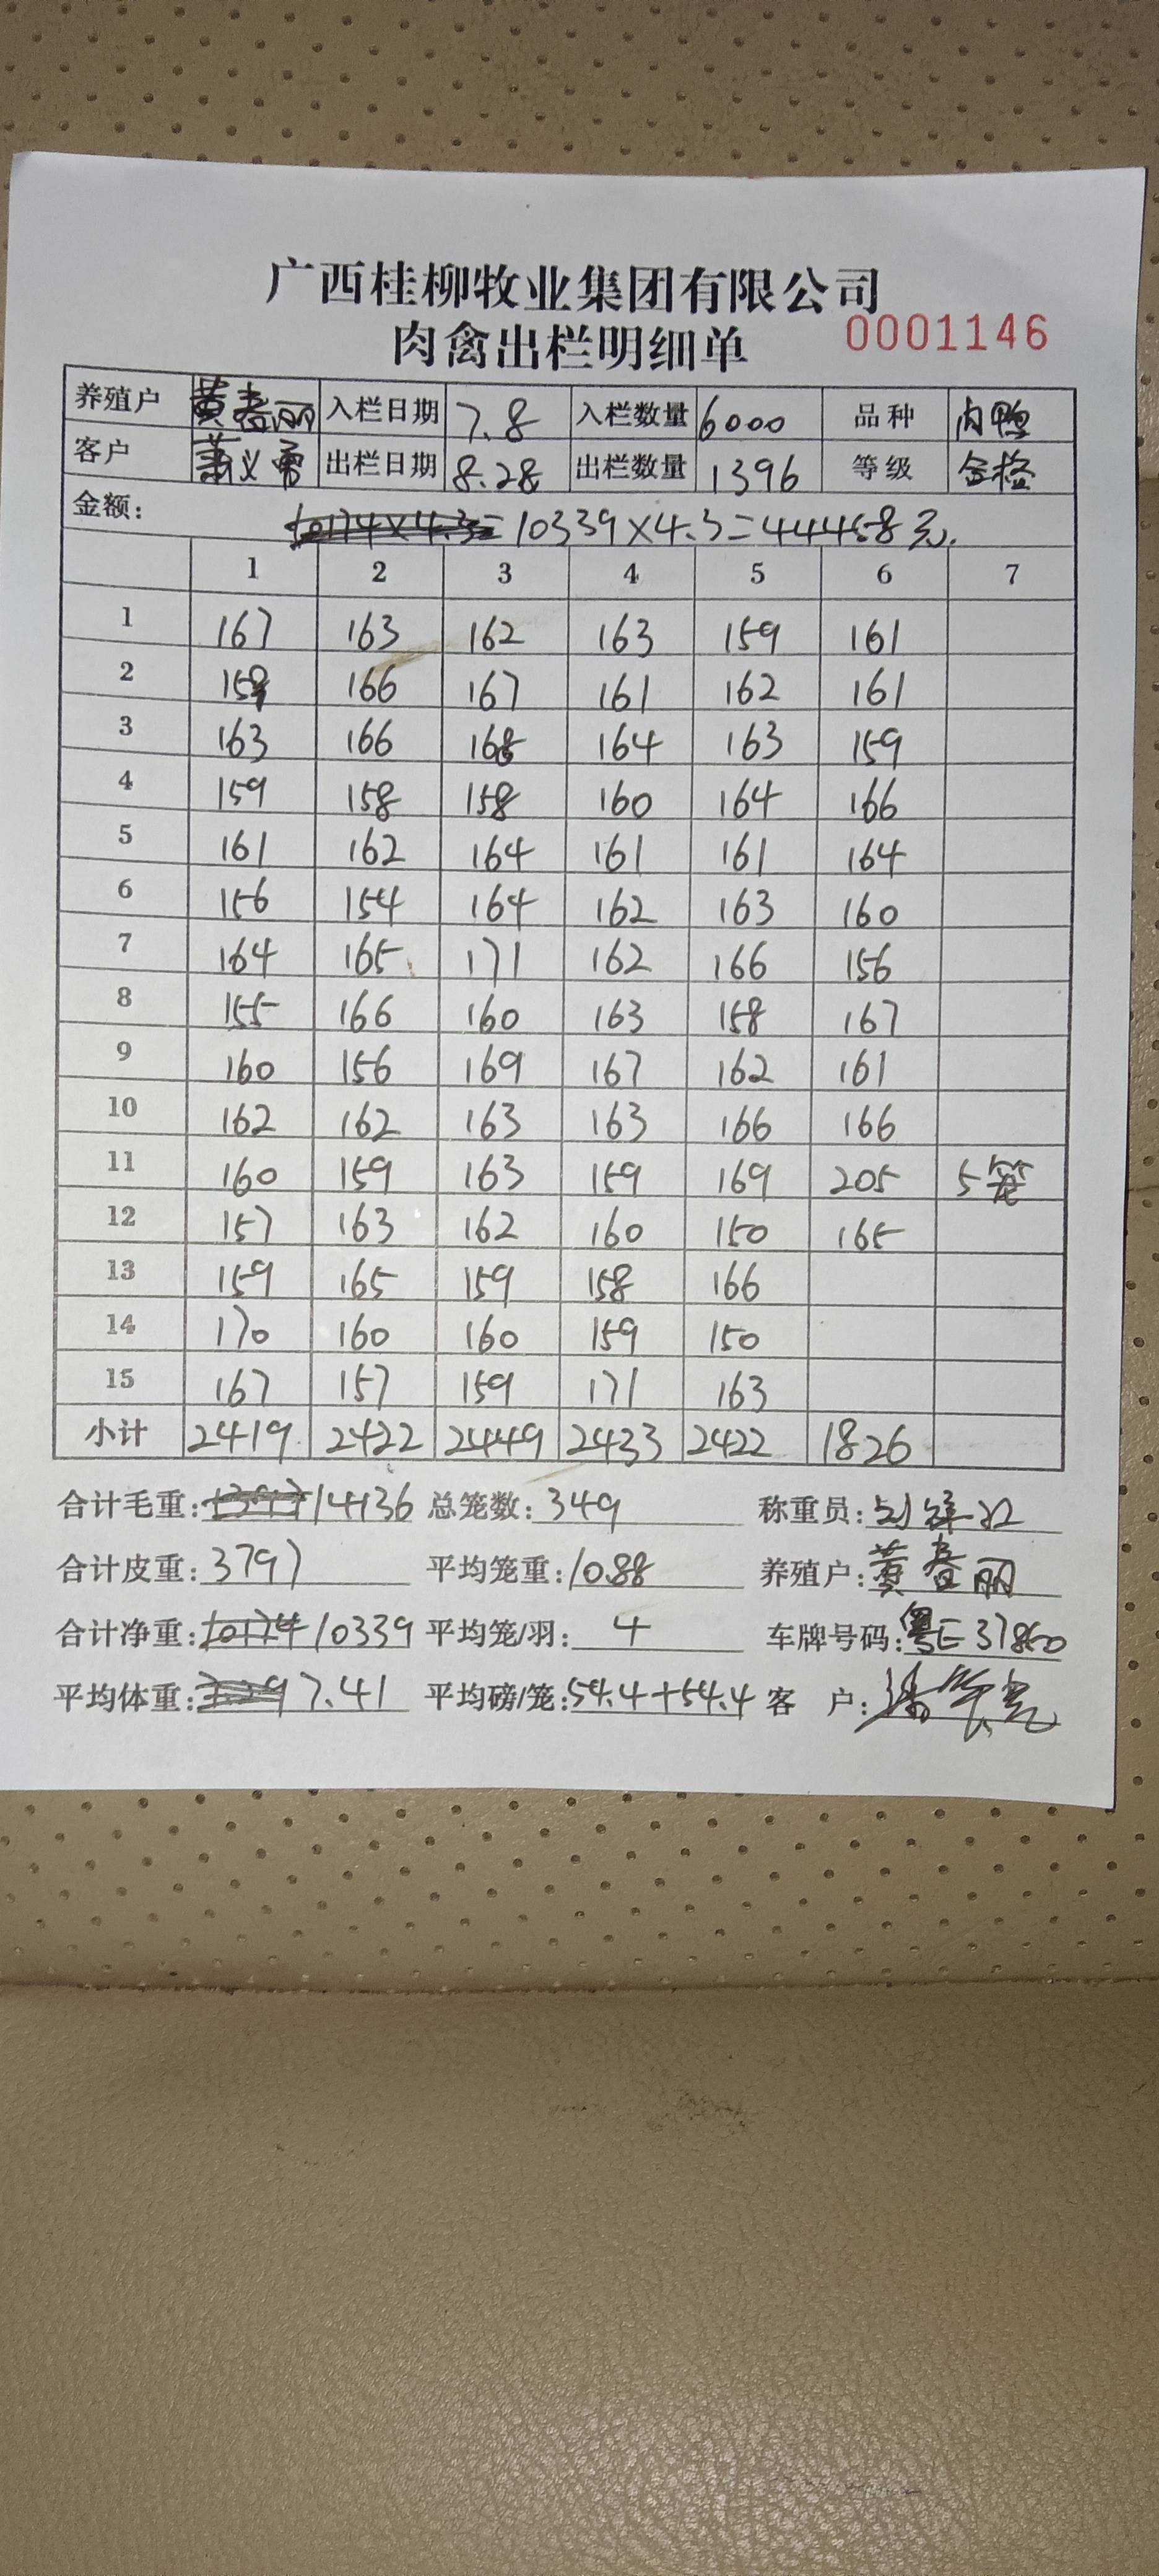 广西桂柳牧业集团有限公司
肉禽出栏明细单 0001146
养殖户 黄春丽 入栏日期 7.8 入栏数量 6000 品种 肉鸭
客户 萧义勇 出栏日期 8.28 出栏数量 1396 等级 合格
金额: 10174×4.3= 10339×4.3=44458元.
1 2 3 4 5 6 7
1 167 163 162 163 159 161
2 159 166 167 161 162 161
3 163 166 168 164 163 159
4 159 158 158 160 164 166
5 161 162 164 161 161 164
6 156 154 164 162 163 160
7 164 165 171 162 166 156
8 155 166 160 163 158 167
9 160 156 169 167 162 161
10 162 162 163 163 166 166
11 160 159 163 159 169 205 5笼
12 157 163 162 160 150 165
13 159 165 159 158 166
14 170 160 160 159 150
15 167 157 159 171 163
小计 2419 2422 2449 2433 2422 1826
合计毛重: 14136 总笼数: 349 称重员:
合计皮重: 3797 平均笼重: 10.88 养殖户: 黄春丽
合计净重: 10174 10339 平均笼/羽: 4 车牌号码: 粤E37860
平均体重: 7.41 平均磅/笼: 54.4+54.4 客 户: